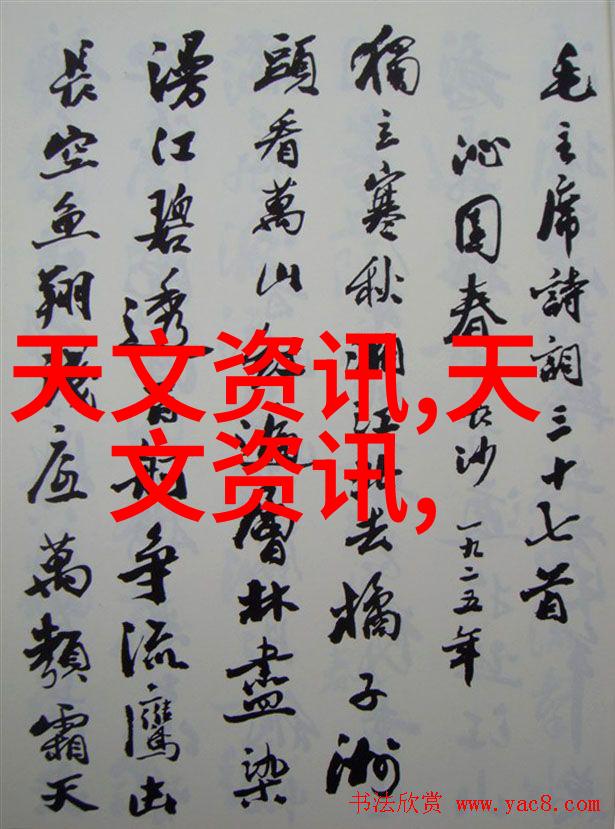 毛主席詩詞三十七首
沁園春 长沙 一九二五年
獨立寒秋湘江北去橘子洲
頭看萬山紅遍層林盡染
漫江碧透百舸争流鷹击
長空魚翔浅底萬類霜天
天文资讯,天
文资讯,
书法欣赏 www.yac8.com